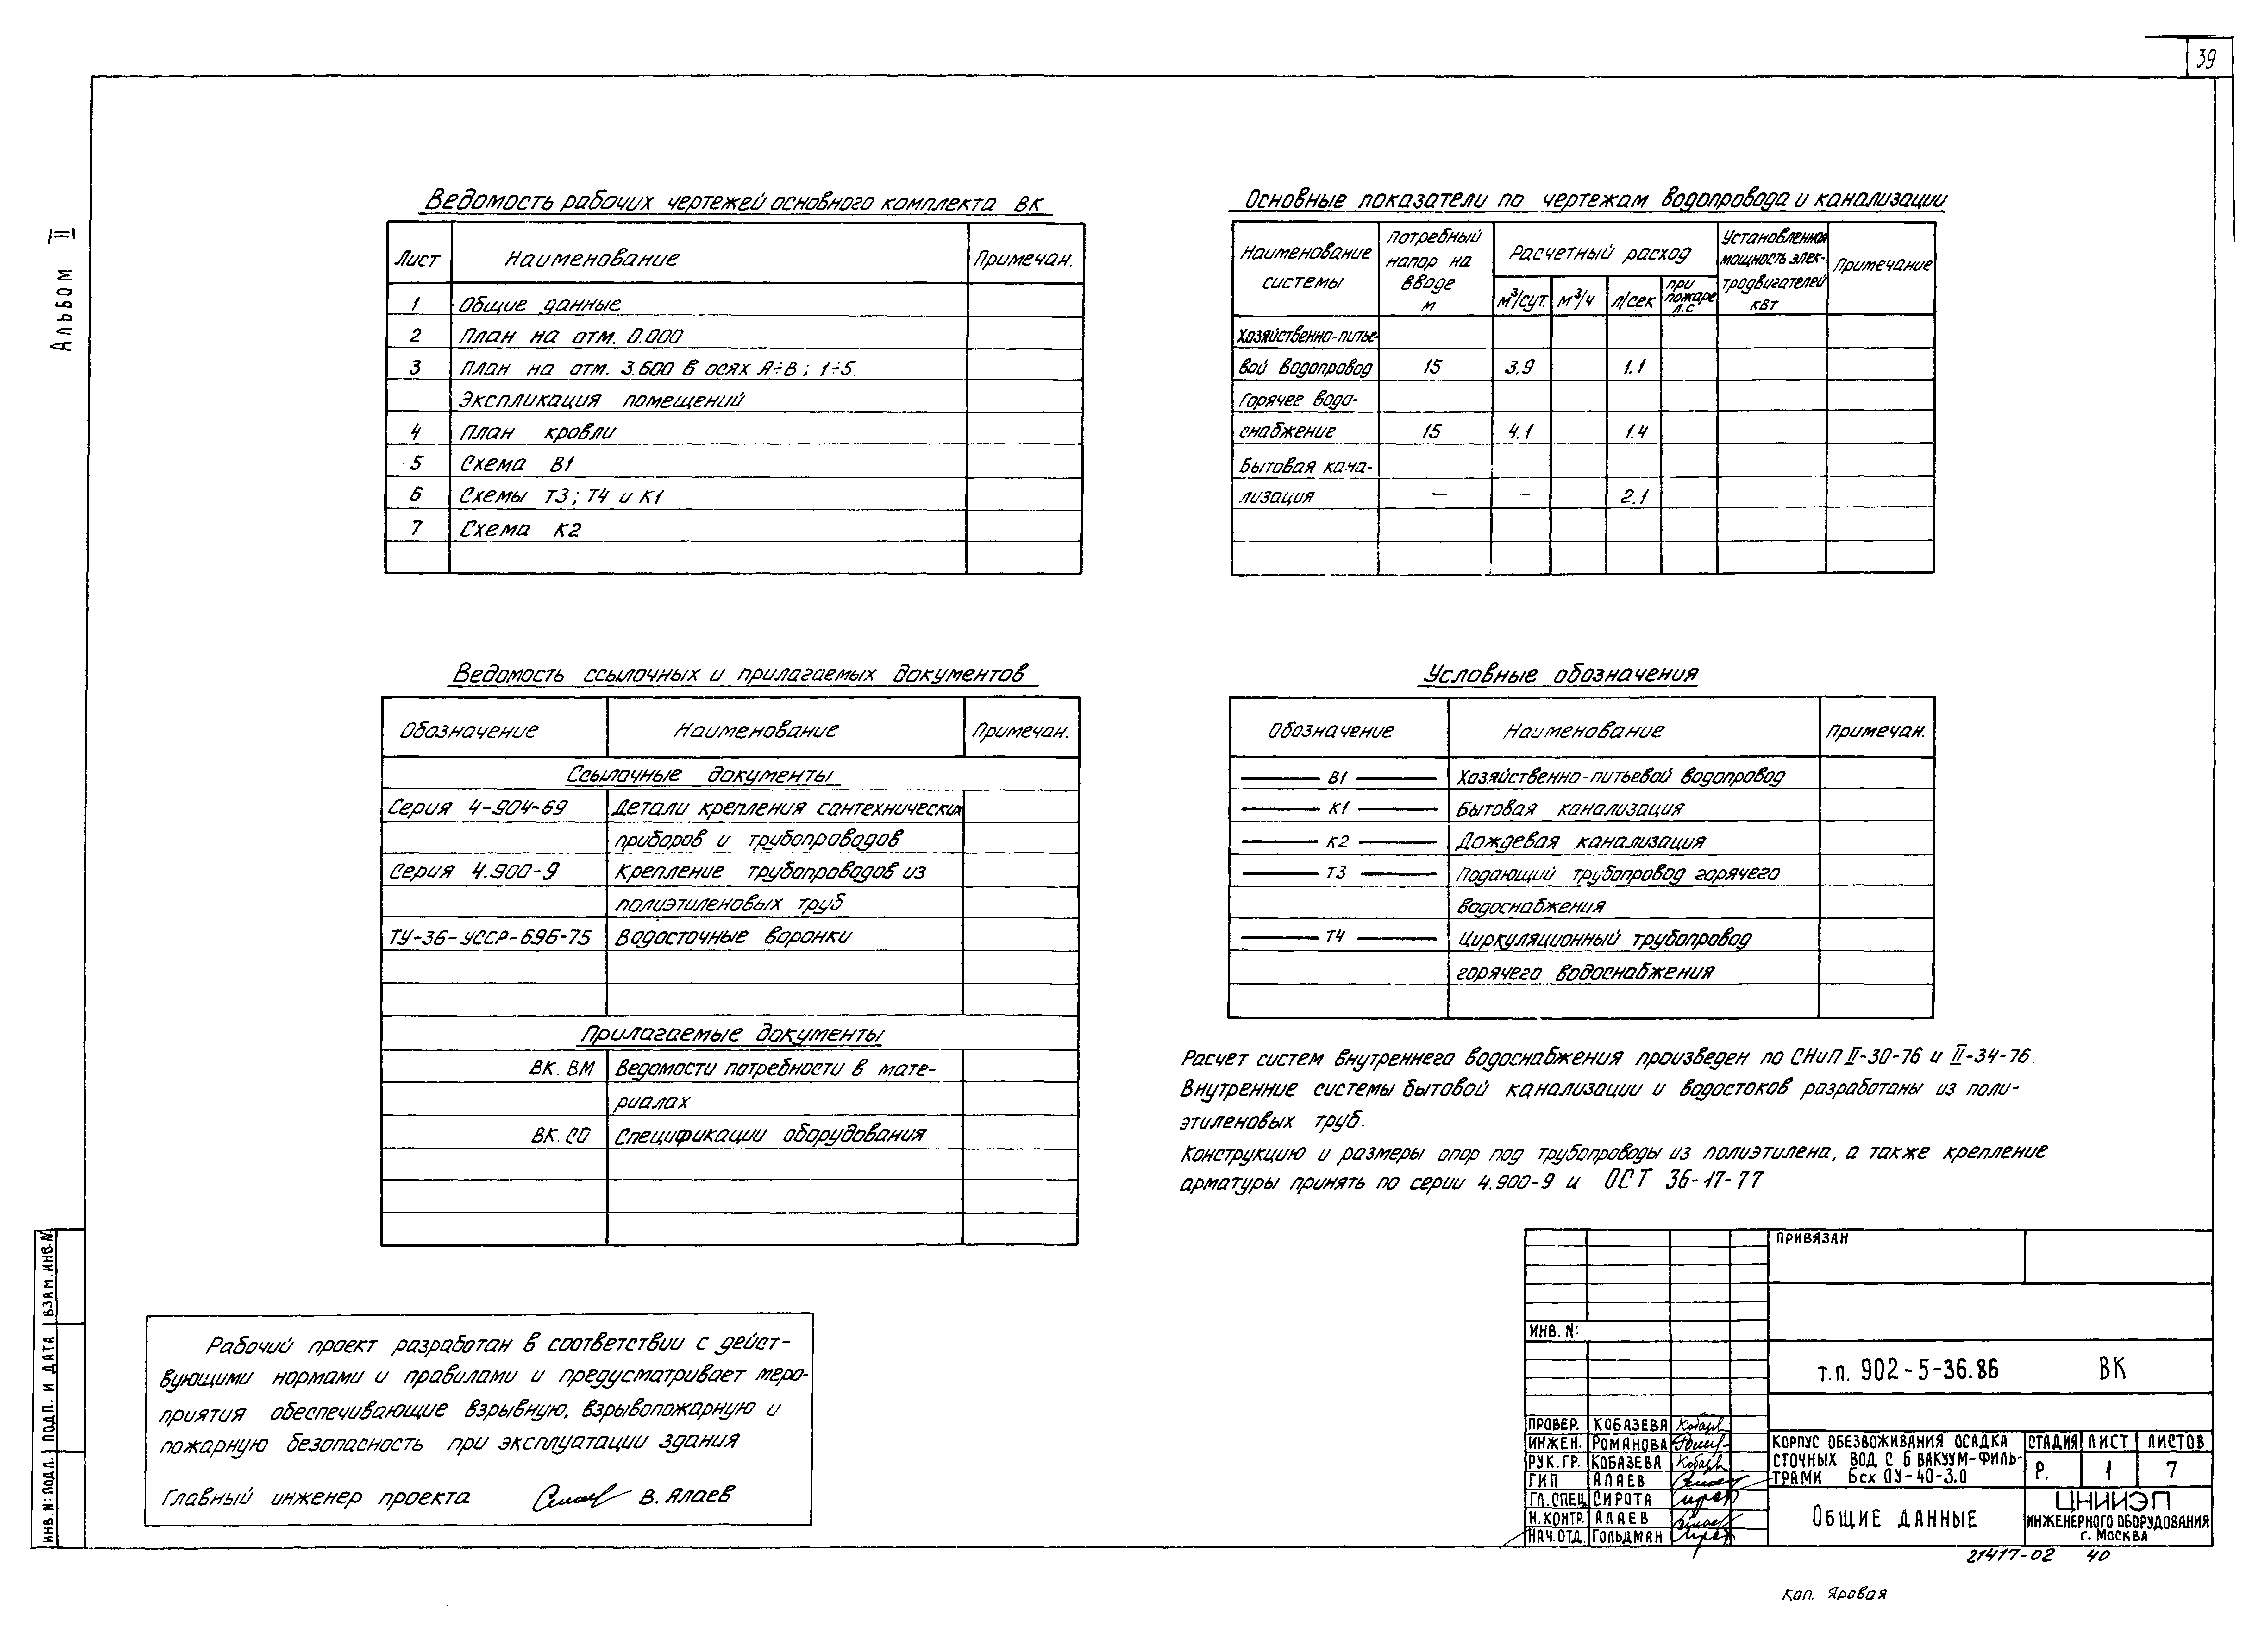 39
Альбом II
Ведомость рабочих чертежей основного комплекта ВК
Лист Наименование Примечан.
1 Общие данные
2 План на отм. 0.000
3 План на отм. 3.600 в осях А÷В; 1÷5.
Экспликация помещений
4 План кровли
5 Схема В1
6 Схемы Т3; Т4 и К1
7 Схема К2
Основные показатели по чертежам водопровода и канализации
Наименование системы
Потребный напор на вводе м
Расчетный расход
м³/сут. м³/ч л/сек при пожаре л.с.
Установленная мощность элек-
тродвигателей квт
Примечание
Хозяйственно-питье-
вой водопровод 15 3.9 1.1
Горячее водо-
снабжение 15 4.1 1.4
Бытовая кана-
лизация — – 2.1
Ведомость ссылочных и прилагаемых документов
Обозначение Наименование Примечан.
Ссылочные документы
Серия 4-904-69 Детали крепления сантехнических
приборов и трубопроводов
Серия 4.900-9 Крепление трубопроводов из
полиэтиленовых труб
ТУ-36-УССР-696-75 Водосточные воронки
Прилагаемые документы
ВК. ВМ Ведомости потребности в мате-
риалах
ВК. СО Спецификации оборудования
Условные обозначения
Обозначение Наименование Примечан.
В1 Хозяйственно-питьевой водопровод
К1 Бытовая канализация
К2 Дождевая канализация
Т3 Подающий трубопровод горячего
водоснабжения
Т4 Циркуляционный трубопровод
горячего водоснабжения
Расчет систем внутреннего водоснабжения произведен по СНиП II-30-76 и II-34-76.
Внутренние системы бытовой канализации и водостоков разработаны из поли-
этиленовых труб.
Конструкцию и размеры опор под трубопроводы из полиэтилена, а также крепление
арматуры принять по серии 4.900-9 и ОСТ 36-17-77
Рабочий проект разработан в соответствии с дейст-
вующими нормами и правилами и предусматривает меро-
приятия обеспечивающие взрывную, взрывопожарную и
пожарную безопасность при эксплуатации здания
Главный инженер проекта В. Алаев
ИНВ. N: ПОДЛ. ПОДП. И ДАТА ВЗАМ. ИНВ. N
ПРИВЯЗАН
ИНВ. N:
т.п. 902-5-36.86 ВК
ПРОВЕР. КОБАЗЕВА
ИНЖЕН. РОМАНОВА
РУК. ГР. КОБАЗЕВА
ГИП АЛАЕВ
ГЛ. СПЕЦ СИРОТА
Н. КОНТР. АЛАЕВ
НАЧ. ОТД. ГОЛЬДМАН
КОРПУС ОБЕЗВОЖИВАНИЯ ОСАДКА
СТОЧНЫХ ВОД С 6 ВАКУУМ-ФИЛЬ-
ТРАМИ Бсх ОУ-40-3.0
СТАДИЯ ЛИСТ ЛИСТОВ
Р. 1 7
ОБЩИЕ ДАННЫЕ
ЦНИИЭП
ИНЖЕНЕРНОГО ОБОРУДОВАНИЯ
г. МОСКВА
21417-02 40
Коп. Яровая